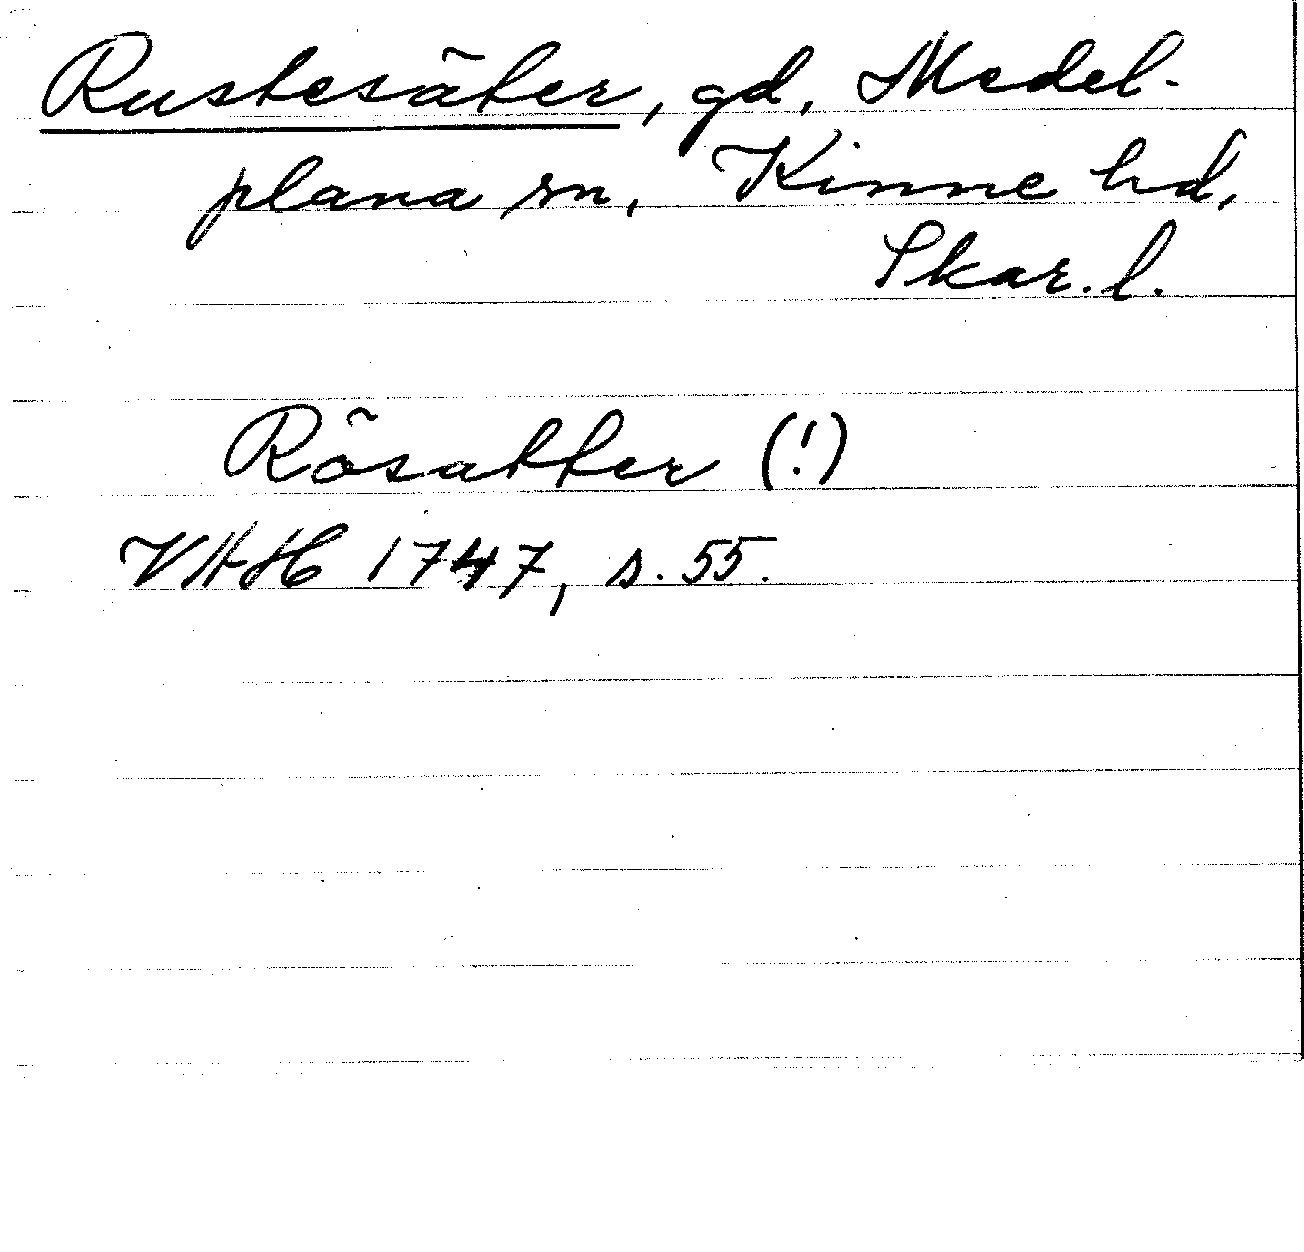 Rustesäter, gd, Medel-
plana sn, Kinne hd,
Skar. l.
Rösatter (!)
VHH 1747, s. 55.